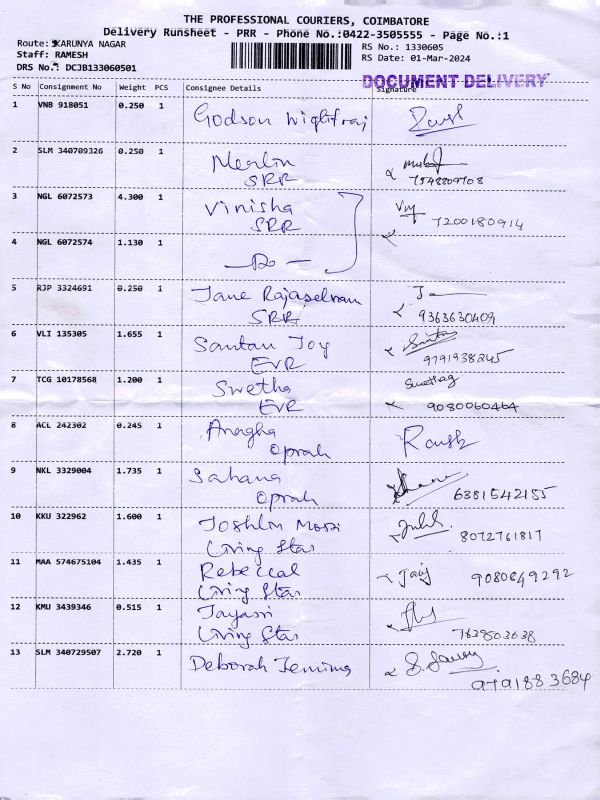 THE PROFESSIONAL COURIERS, COIMBATORE
Delivery Runsheet - PRR - Phone No.:0422-3505555 - Page No.:1
Route: KARUNYA NAGAR
RS No.: 1330605
Staff: RAMESH
RS Date: 01-Mar-2024
DRS No.: DCJB133060501
DOCUMENT DELIVERY
S No Consignment No Weight PCS Consignee Details Signature
1 VNB 918051 0.250 1 Godson
2 SLM 340709326 0.250 1 Merlin
SRR 7548809708
3 NGL 6072573 4.300 1 Vinisha
SRR 7200180914
4 NGL 6072574 1.130 1 -Do-
5 RJP 3324691 0.250 1 Jane Rajaselvan
SRR 9363630409
6 VLI 135305 1.655 1 Santan Joy
EVR 9791938245
7 TCG 10178568 1.200 1 Swetha
EVR 9080060464
8 ACL 242302 0.245 1 Anagha
Oprah
9 NKL 3329004 1.735 1 Sahana
Oprah 6381542155
10 KKU 322962 1.600 1 Joshlin
Living Star 8072761817
11 MAA 574675104 1.435 1 Rebeccal
Living Star 9080649292
12 KMU 3439346 0.515 1 Jayasri
Living Star 7639503638
13 SLM 340729507 2.720 1 Deborah Jemima
9791883684